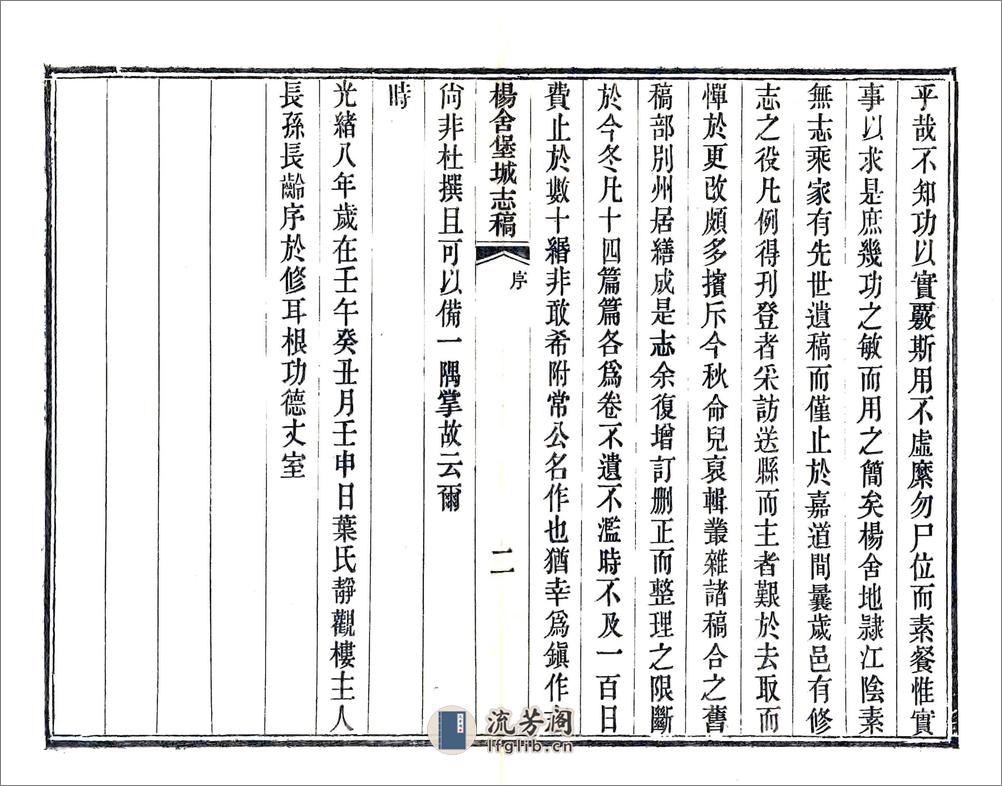 乎哉不知功以實覈斯用不虛糜勿尸位而素餐惟實
事以求是庶幾功之敏而用之簡矣楊舍地隷江陰素
無志乘家有先世遺稿而僅止於嘉道間曩歲邑有修
志之役凡例得刊登者采訪送縣而主者艱於去取而
憚於更改頗多擯斥今秋命兒裒輯叢雜諸稿合之舊
稿部別州居繕成是志余復增訂刪正而整理之限斷
於今冬凡十四篇篇各爲卷不遺不濫時不及一百日
費止於數十緡非敢希附常公名作也猶幸爲鎭作
楊舍堡城志稿
序
二
尙非杜撰且可以備一隅掌故云爾
時
光緒八年歲在壬午癸丑月壬申日葉氏靜觀樓主人
長孫長齡序於修耳根功德丈室
流芳阁
lfglib.cn